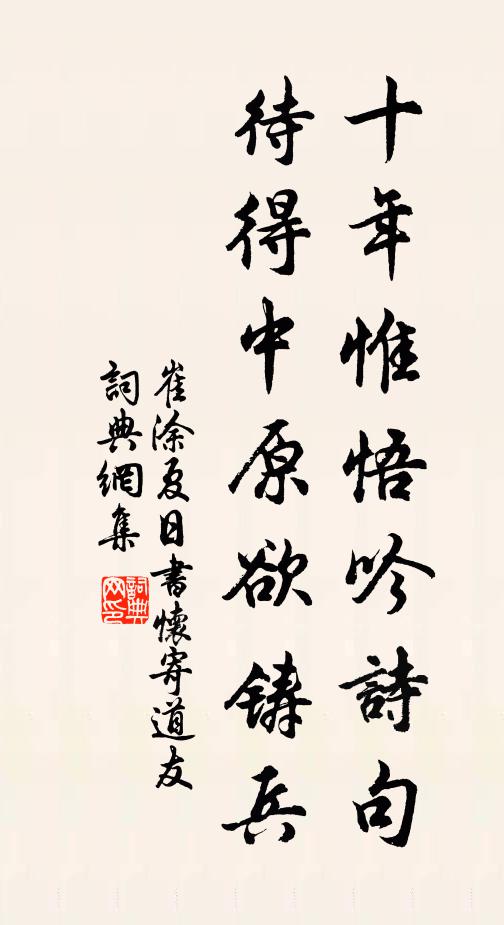 十年惟悟吟詩句
待得中原欲鑄兵
崔涂夏日書懷寄道友
詞典網集
詞典網印